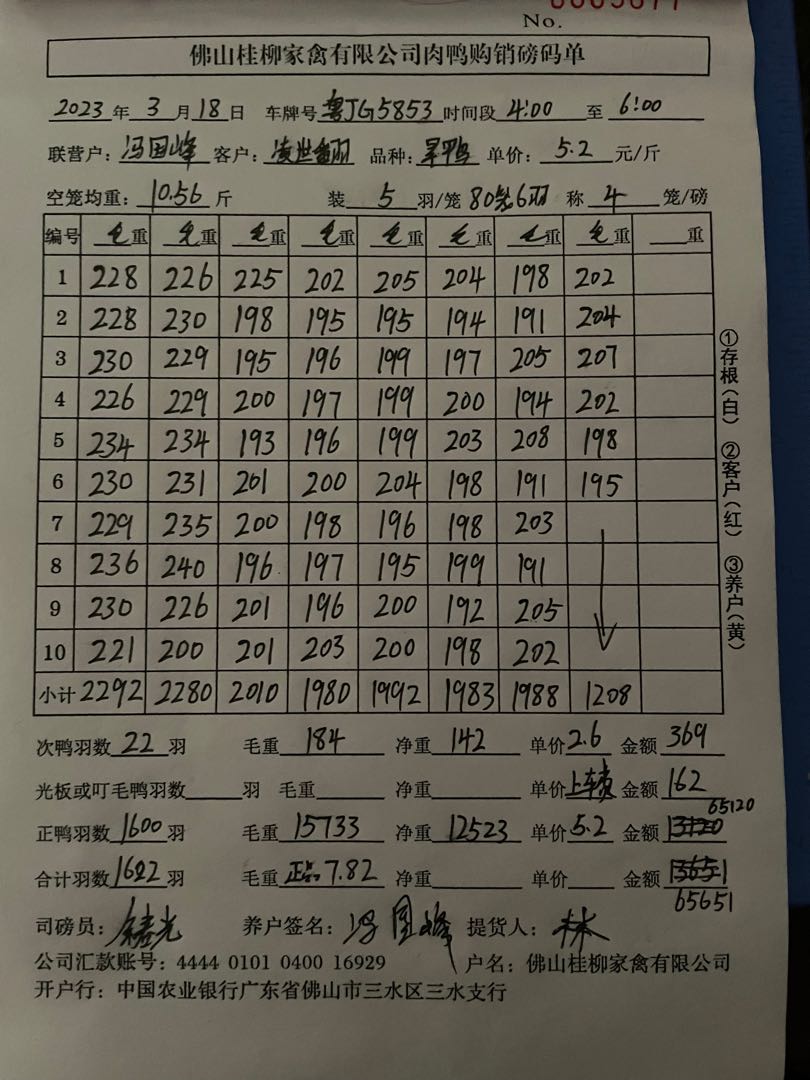 No.
佛山桂柳家禽有限公司肉鸭购销磅码单
2023年 3月18日 车牌号粤JG5853时间段4:00至6:00
联营户:冯国峰 客户:凌世翻 品种:旱鸭 单价:5.2元/斤
空笼均重:10.56斤 装5羽/笼 80笼6羽 称4笼/磅
编号 毛重 毛重 毛重 毛重 毛重 毛重 毛重 毛重 重
1 228 226 225 202 205 204 198 202
2 228 230 198 195 195 194 191 204
3 230 229 195 196 199 197 205 207
4 226 229 200 197 199 200 194 202
5 234 234 193 196 199 203 208 198
6 230 231 201 200 204 198 191 195
7 229 235 200 198 196 198 203
8 236 240 196 197 195 199 191
9 230 226 201 196 200 192 205
10 221 200 201 203 200 198 202
小计 2292 2280 2010 1980 1992 1983 1988 1208
次鸭羽数22羽 毛重184 净重142 单价2.6 金额369
光板或叮毛鸭羽数羽 毛重 净重 单价上车费 金额162
65120
正鸭羽数1600羽 毛重15733 净重12523 单价5.2 金额
合计羽数1622羽 毛重正品7.82 净重 单价 金额
65651
司磅员: 养户签名:冯国峰 提货人:林
公司汇款账号:4444 0101 0400 16929 户名:佛山桂柳家禽有限公司
开户行:中国农业银行广东省佛山市三水区三水支行
①存根(白) ②客户(红) ③养户(黄)